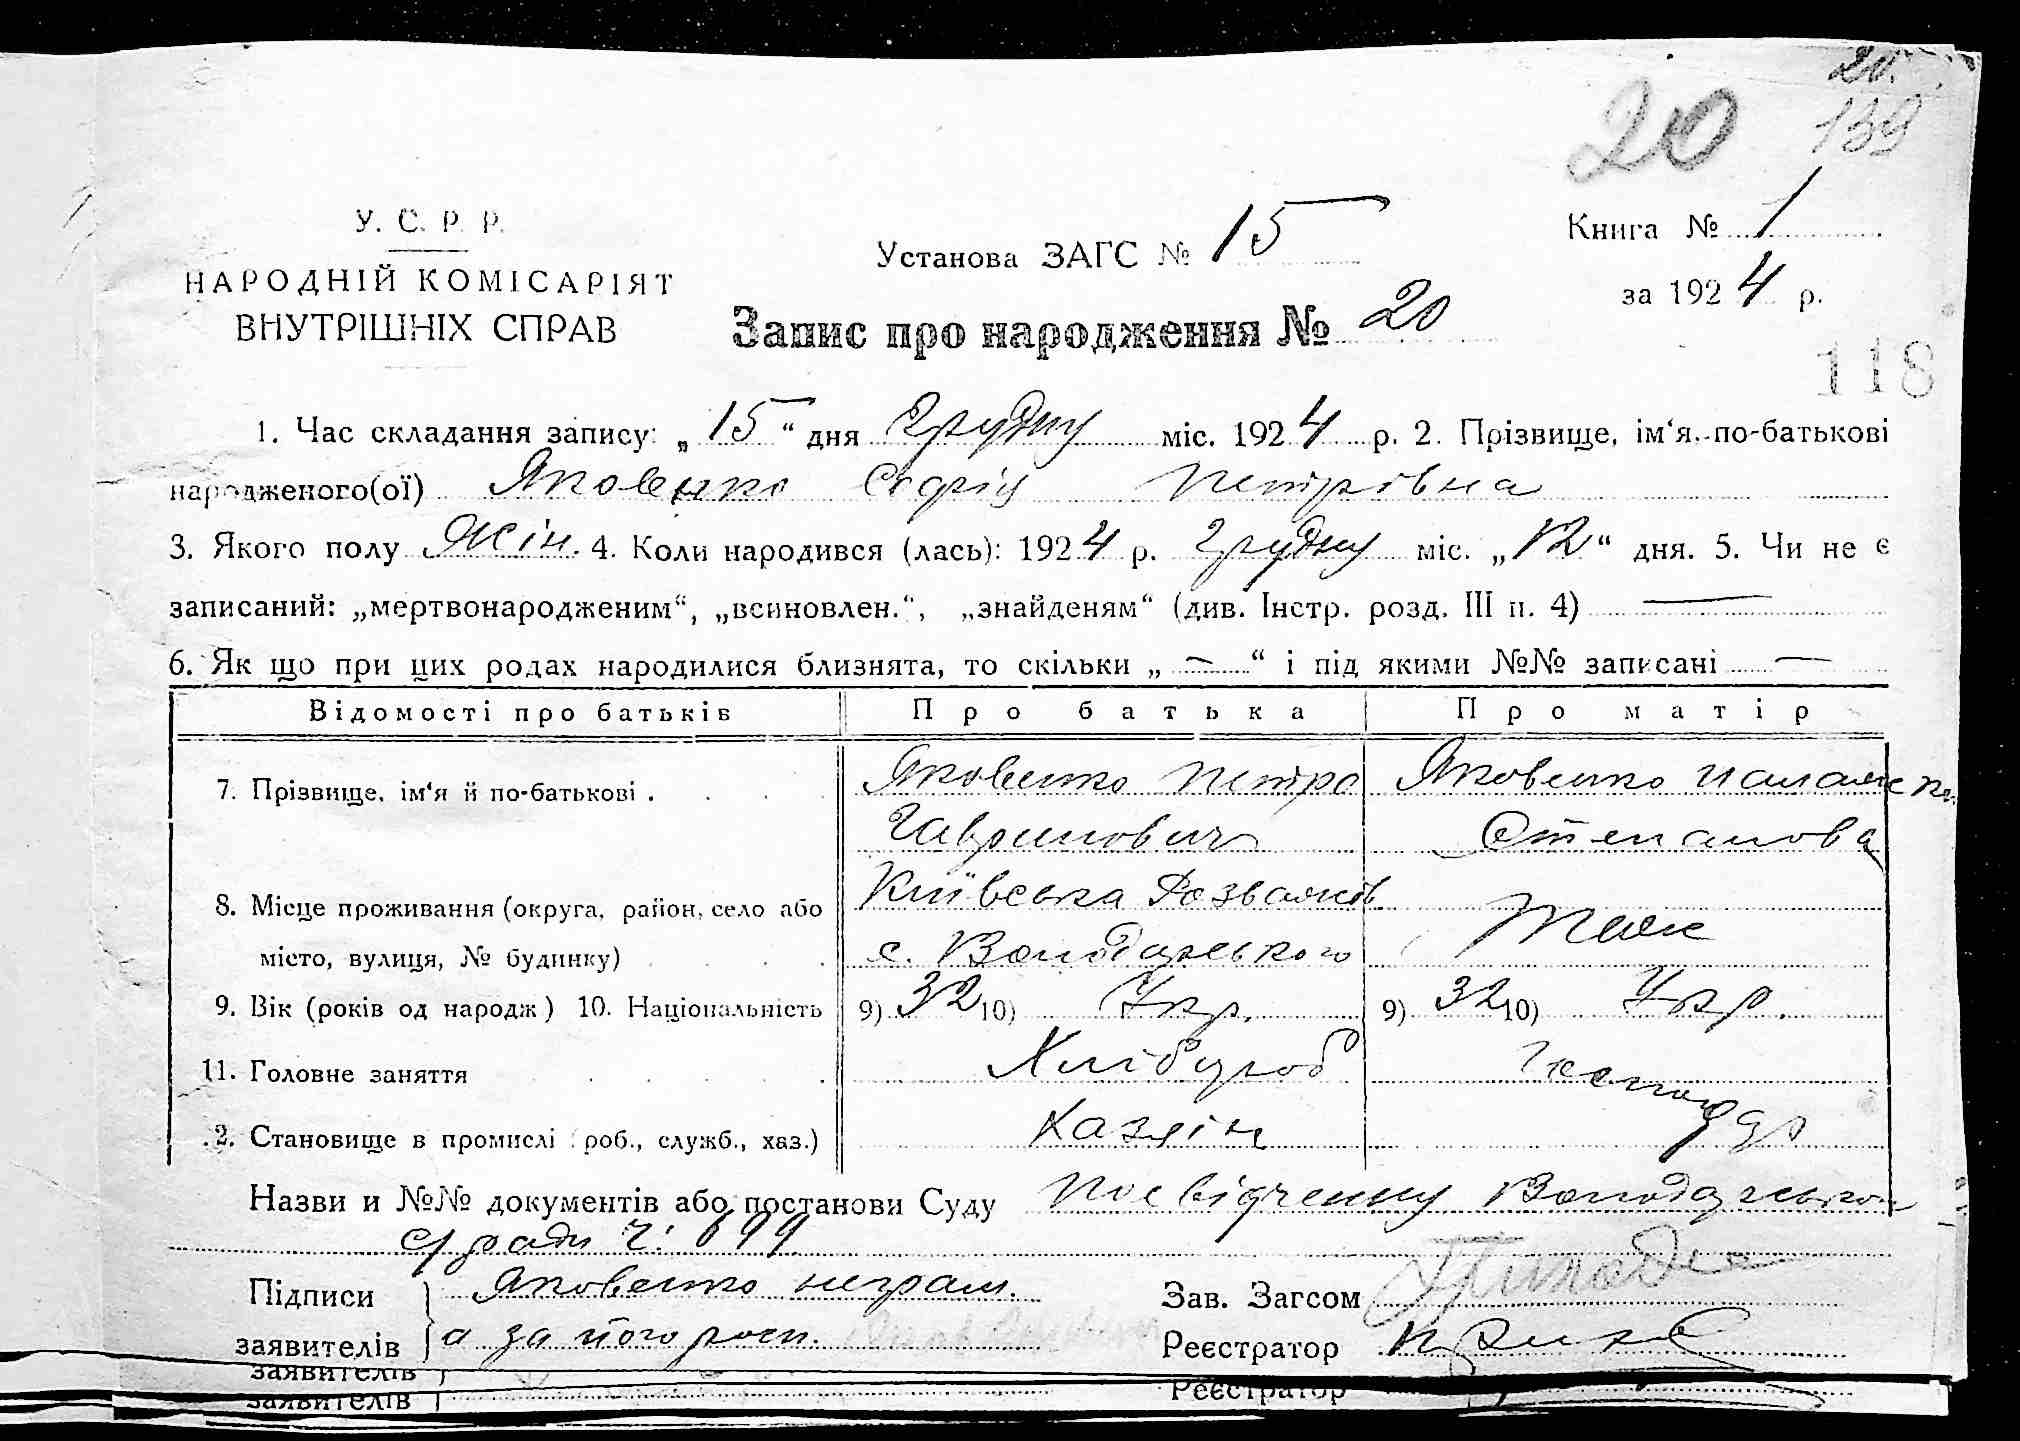 20.
20 139
У. С. Р. Р.
НАРОДНІЙ КОМІСАРІЯТ
ВНУТРІШНІХ СПРАВ
Установа ЗАГС № 15
Книга № 1
за 1924 р.
Запис про народження № 20
118
1. Час складання запису: „15“ дня Грудну міс. 1924 р. 2. Прізвище, ім‘я, по-батькові
народженого(ої) Яковенко Софія Петрівна
3. Якого полу Жін. 4. Коли народився (лась): 1924 р. Грудну міс. „12“ дня. 5. Чи не є
записаний: „мертвонародженим“, „всиновлен.“, „знайденям“ (див. Інстр. розд. III п. 4) —
6. Як що при цих родах народилися близнята, то скільки „ — “ і під якими №№ записані —
Відомості про батьків Про батька Про матір
7. Прізвище, ім‘я й по-батькові . Яковенко Петро Яковенко
Гаврилович Степанова
8. Місце проживання (округа, район, село або Київська Розважів
місто, вулиця, № будинку) с. Володарського Теж
9. Вік (років од народж) 10. Національність 9) 32 10) Укр. 9) 32 10) Укр.
11. Головне заняття Хлібороб
12. Становище в промислі (роб., служб., хаз.) Хазяїн
Назви и №№ документів або постанови Суду Посвідченну
с/ ради ч. 699
Підписи Яковенко неграм. Зав. Загсом
заявителів а за його росп. Реєстратор
заявителів
заявителів Реєстратор